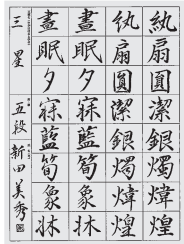 紈扇圓潔銀燭煒煌
紈扇圓潔銀燭煒煌
晝眠夕寐藍筍象牀
晝眠夕寐藍筍象牀
三星 五段 新田美秀